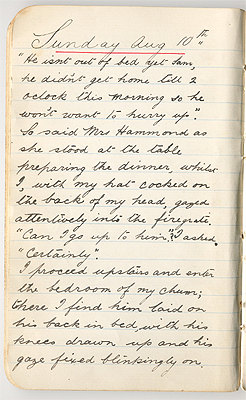 Sunday Aug 10th
"He isn't out of bed yet Sam,
he didn't get home till 2
oclock this morning so he
won't want to hurry up."
So said Mrs Hammond as
she stood at the table
preparing the dinner, whilst
I, with my hat cocked on
the back of my head, gazed
attentively into the firegrate.
"Can I go up to him?" I asked.
"Certainly".
I proceed upstairs and enter
the bedroom of my chum;
there I find him laid on
his back in bed, with his
knees drawn up and his
gaze fixed blinkingly on